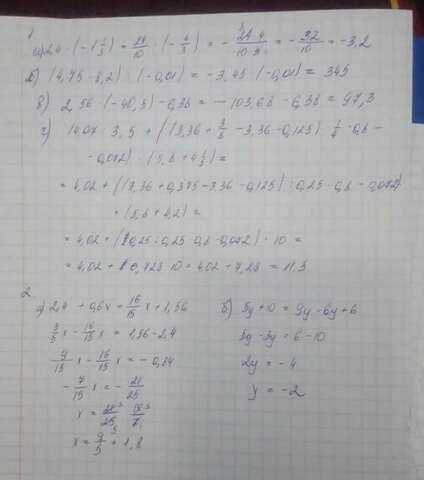 1.
а) 2,4 · (-1 1/3) = 24/10 · (-4/3) = - 24·4/10·3 = - 32/10 = -3,2
б) (4,75 - 8,2) : (-0,01) = -3,45 : (-0,01) = 345
в) 2,56 · (-40,5) - 6,38 = -103,68 - 6,38 = 97,3
г) 14,07 : 3,5 + ((3,36 + 3/8 - 3,36 - 0,125) : 1/4 · 0,8 -
- 0,072) · (5,8 + 4 1/5) =
= 4,02 + ((3,36 + 0,375 - 3,36 - 0,125) : 0,25 · 0,8 - 0,072)
· (5,8 + 4,2) =
= 4,02 + (0,25 : 0,25 · 0,8 - 0,072) · 10 =
= 4,02 + 0,728 · 10 = 4,02 + 7,28 = 11,3
2.
а) 2,4 + 0,6x = 16/15 x + 1,56
3/5 x - 16/15 x = 1,56 - 2,4
9/15 x - 16/15 x = -0,84
- 7/15 x = - 21/25
x = 21/25 · 15/7
x = 9/5 = 1,8
б) 5y + 10 = 9y - 6y + 6
5y - 3y = 6 - 10
2y = -4
y = -2